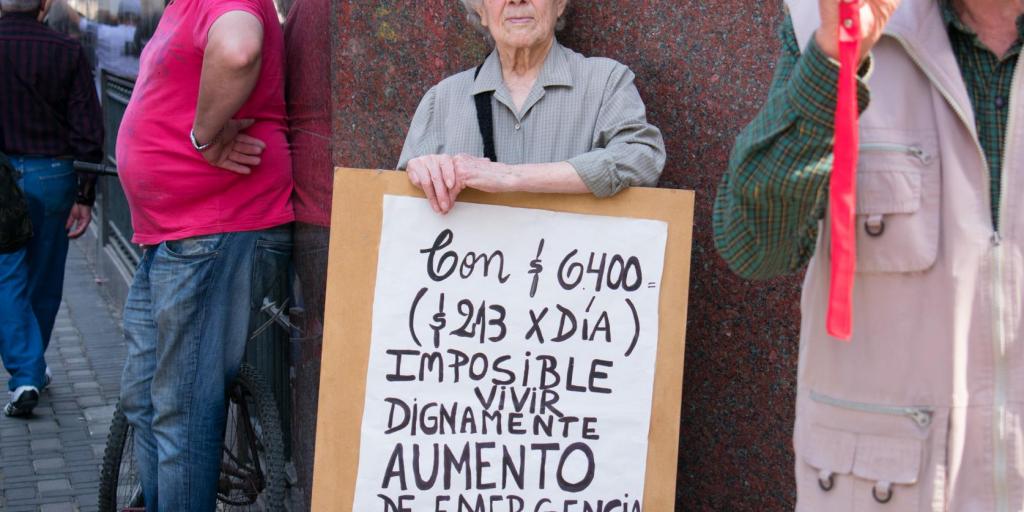 Con $ 6400=
($213 X DÍA)
IMPOSIBLE
VIVIR
DIGNAMENTE
AUMENTO
DE EMERGENCIA